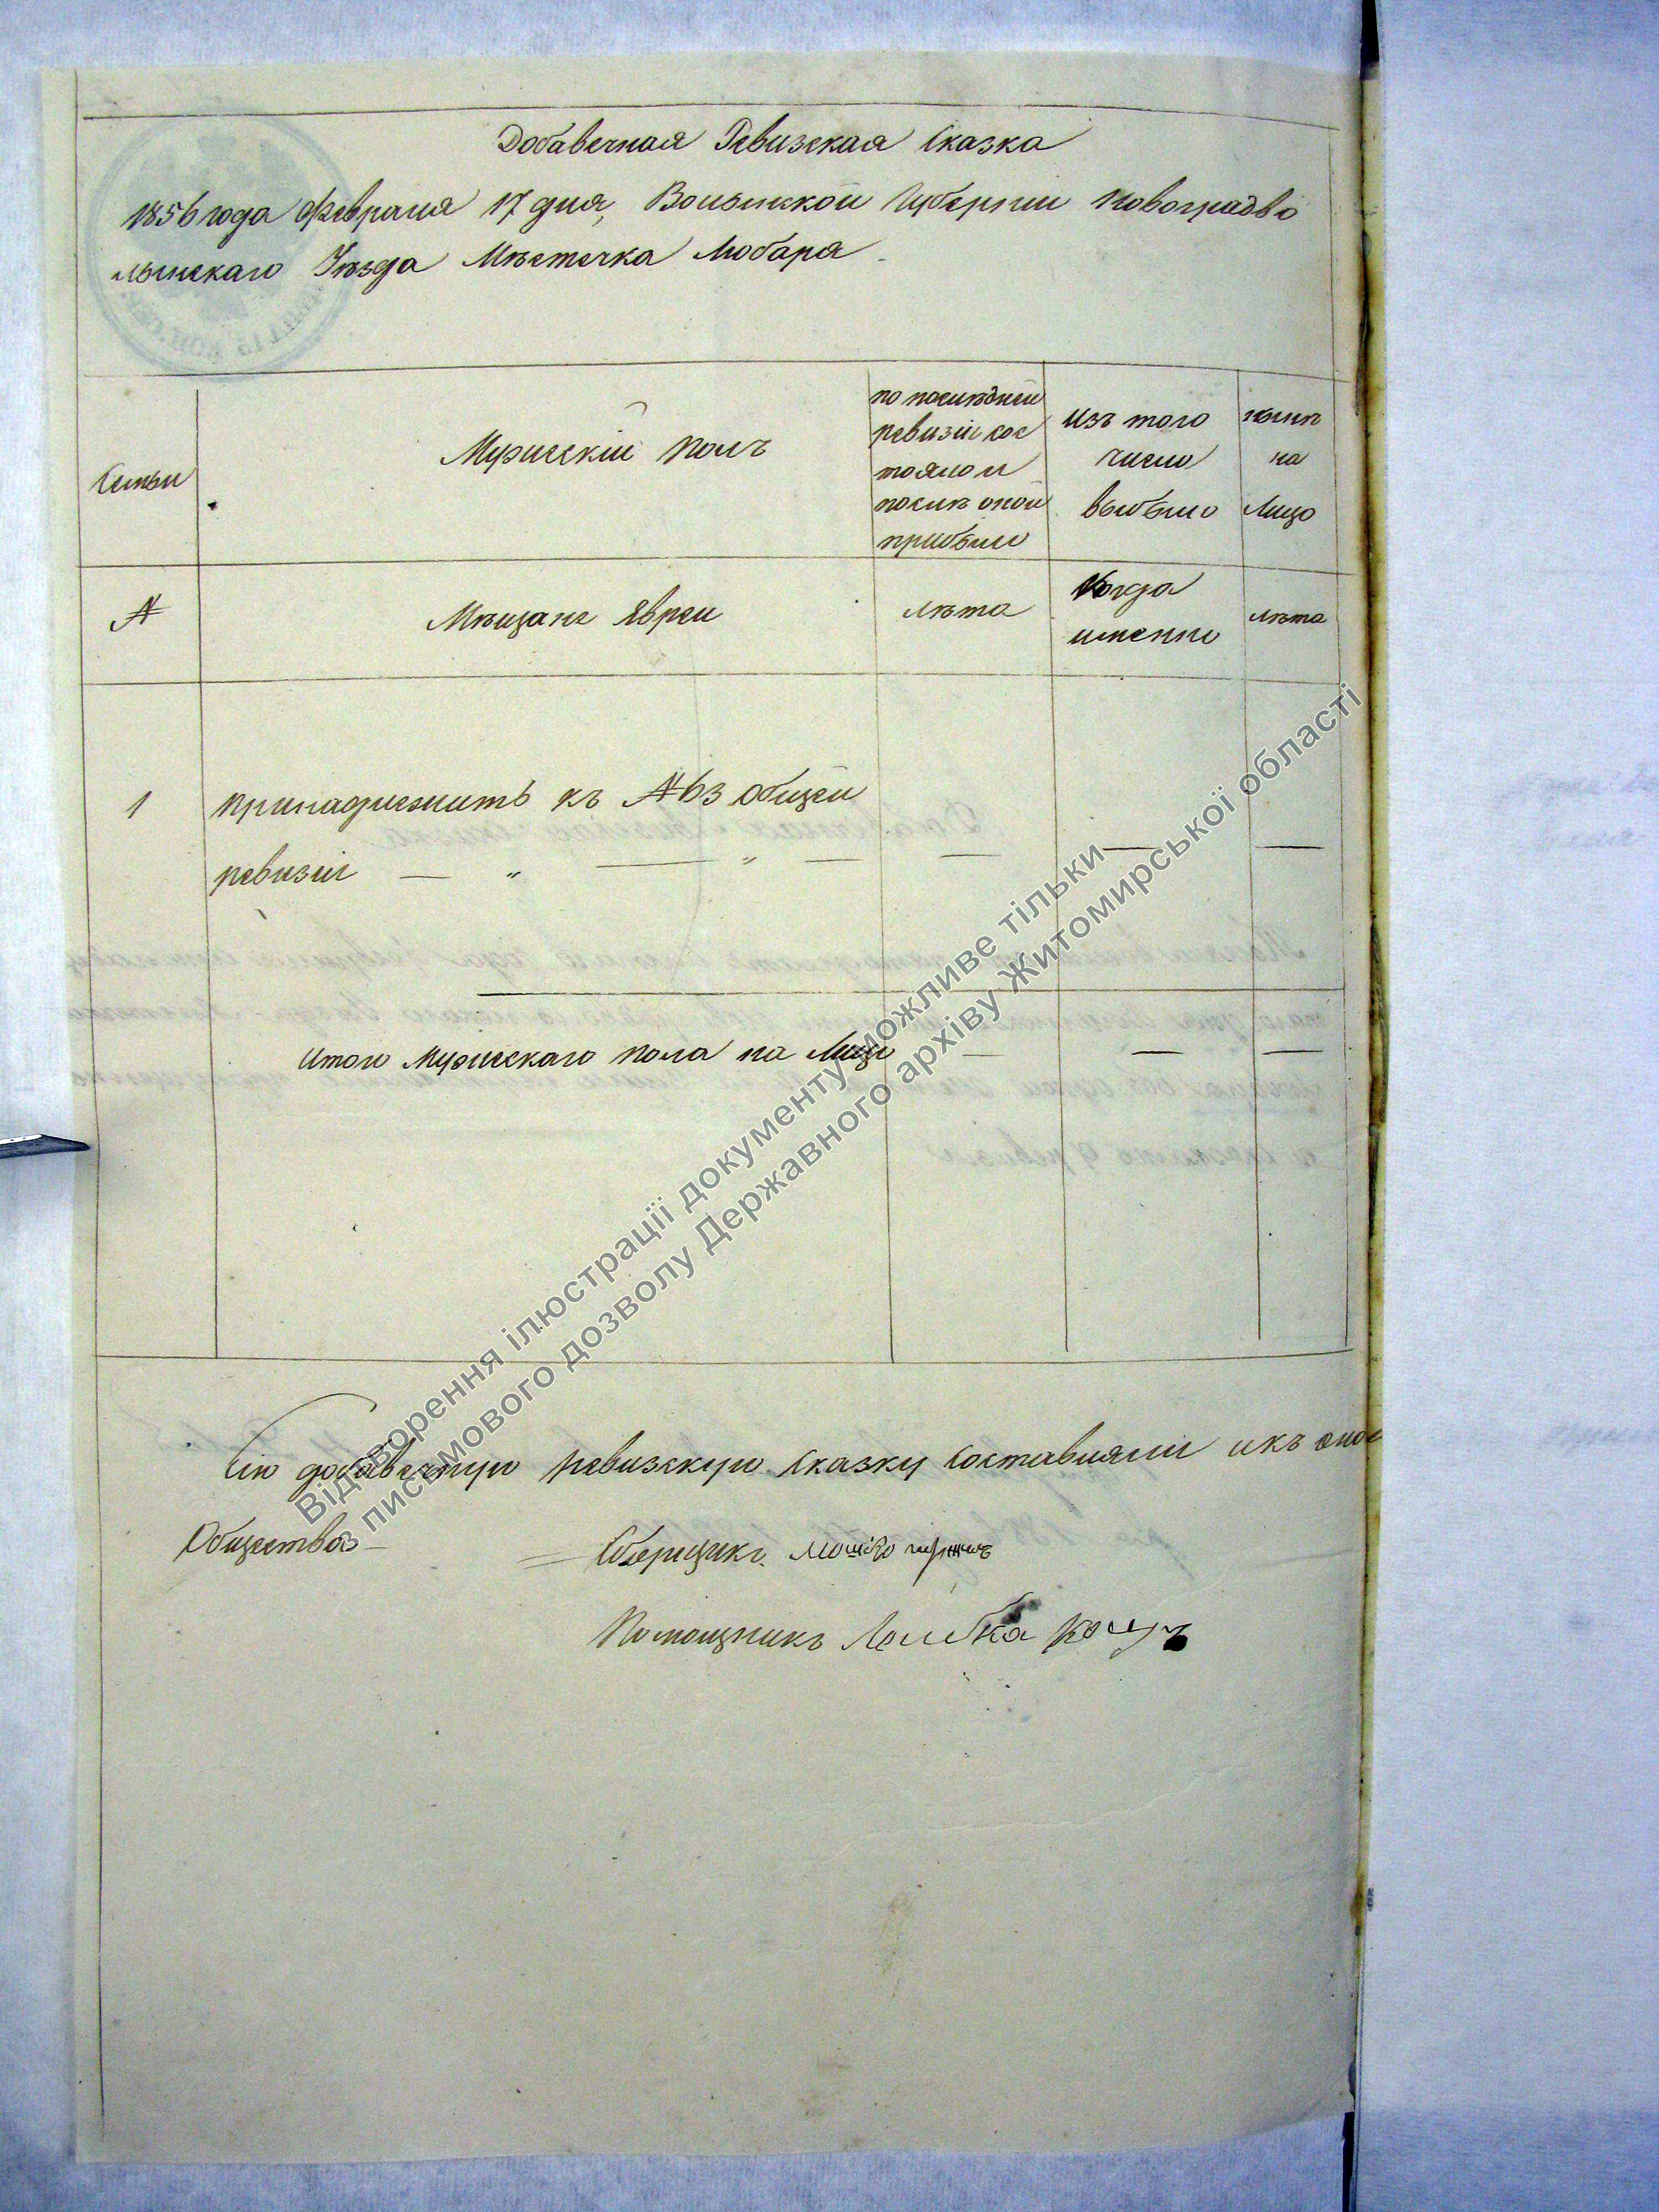 Добавочная Ревизская Сказка
1856 года Февраля 17 дня, Волынской Губернии Новоградво
лынскаго Уѣзда Мѣстечка Любара
Семьи
Мужескій Полъ
по послѣдней
ревизіи сос
тояло и
послѣ оной
прибыло
изъ того
число
выбыло
нынѣ
на
Лицо
№
Мѣщане Евреи
лѣта
Когда
именно
лѣта
1
принадлежить къ № 63 общей
ревизіи — " — " —
Итого Мужескаго пола на Лицо — — —
Сію добавочную ревизскую сказку составляли изъ
Общества
Сборщикъ Мошко
Помощникъ Лейба
Відтворення ілюстрації документу можливе тільки
з письмового дозволу Державного архіву Житомирської області